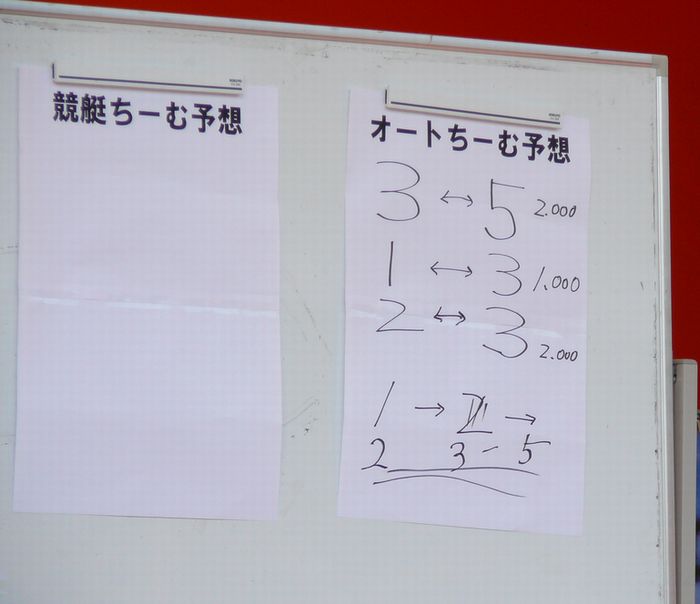 競艇ちーむ予想
オートちーむ予想
3 ↔ 5 2.000
1 ↔ 3 1.000
2 ↔ 3 2.000
1 → →
2 3 - 5